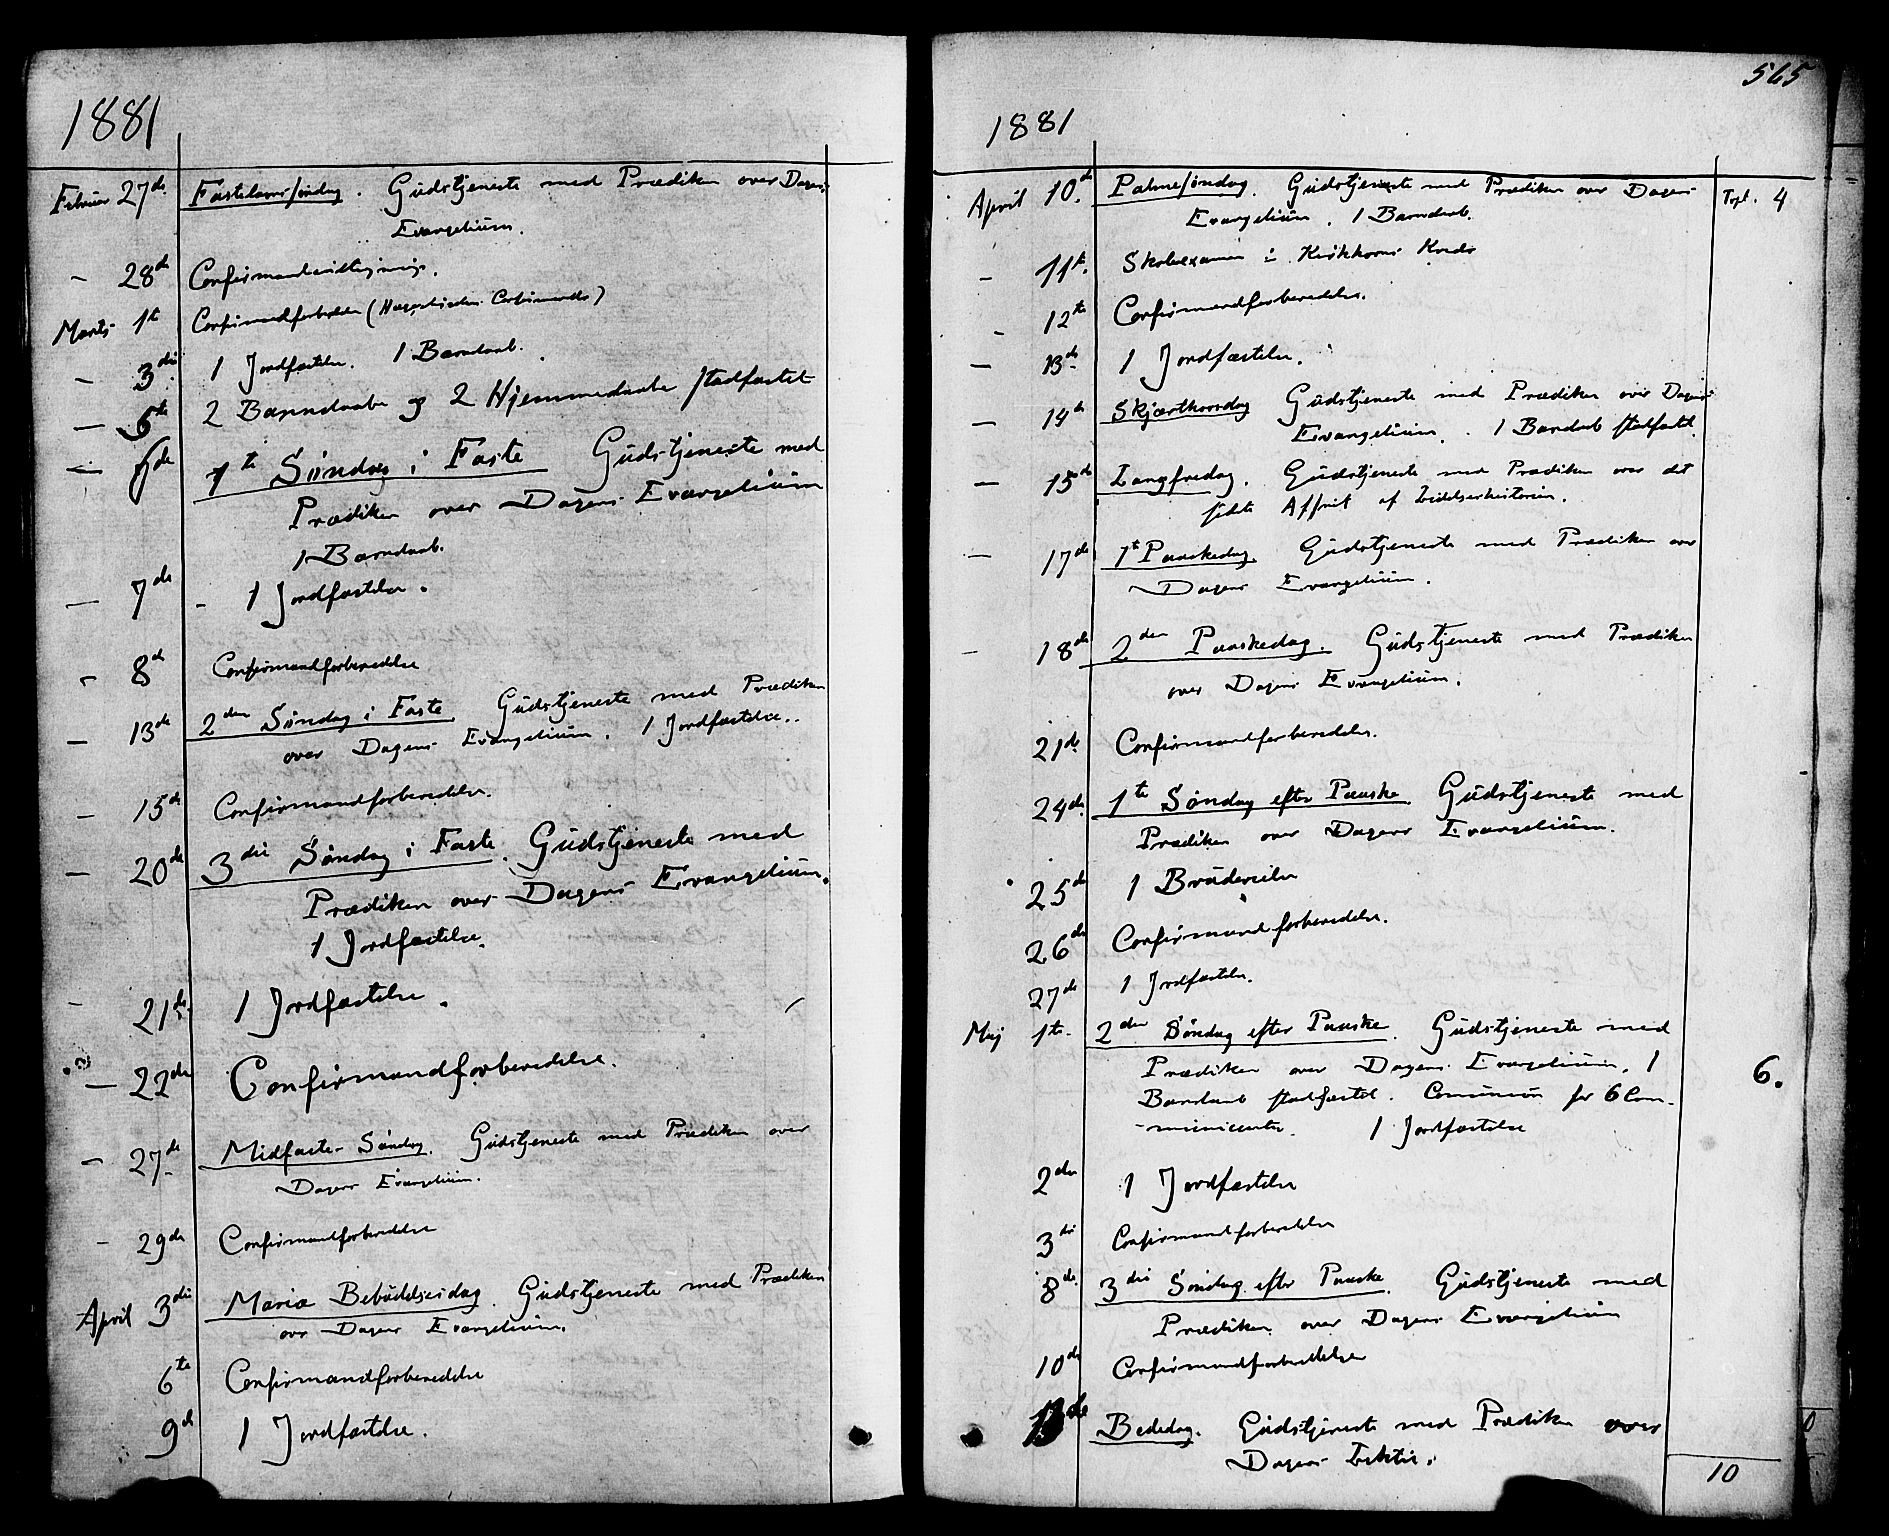 1881
Februar 27de Fastelavnssøndag. Gudstjeneste med Prædiken over Dagens
Evangelium.
— 28de Confirmand
Marts 1te Confirmandforbered (
— 3die 1 Jordfæstelse. 1 Barndaab.
— 5te 2 Barndaabe og 2 Hjemmedaabe stadfæstet
— 6de 1te Søndag i Faste Gudstjeneste med
Prædiken over Dagens Evangelium
1 Barndaab.
— 7de - 1 Jordfæstelse.
— 8de Confirmandforberedelse
— 13de 2den Søndag i Faste. Gudstjeneste med Prædiken
over Dagens Evangelium. 1 Jordfæstelse.
— 15de Confirmandforberedelse.
— 20de 3die Søndag i Faste. Gudstjeneste med
Prædiken over Dagens Evangelium.
1 Jordfæstelse.
— 21de 1 Jordfæstelse.
— 22de Confirmandforberedelse.
— 27de Midfaste-Søndag. Gudstjeneste med Prædiken over
Dagens Evangelium.
— 29de Confirmandforberedelse
April 3die Mariæ Bebudelsesdag. Gudstjeneste med Prædiken
over Dagens Evangelium.
6te Confirmandforberedelse
9de 1 Jordfæstelse.
565
1881
April 10de Palmesøndag. Gudstjeneste med Prædiken over Dagens 4
Evangelium. 1 Barndaab.
— 11te Skoleexamen i Kreds
— 12te Confirmandforberedelse.
— 13de 1 Jordfæstelse.
— 14de Skjærthorsdag Gudstjeneste med Prædiken over Dagens
Evangelium. 1 Barndaab stadfæstet.
— 15de Langfredag. Gudstjeneste med Prædiken over det
sidste Afsnit af Lidelseshistorien.
— 17de 1te Paaskedag. Gudstjeneste med Prædiken over
Dagens Evangelium.
— 18de 2den Paaskedag. Gudstjeneste med Prædiken
over Dagens Evangelium.
21de Confirmandforberedelse.
24de 1te Søndag efter Paaske. Gudstjeneste med
Prædiken over Dagens Evangelium.
25de 1 Brudevielse
26de Confirmandforberedelse.
27de 1 Jordfæstelse.
Maj 1te 2den Søndag efter Paaske. Gudstjeneste med
Prædiken over Dagens Evangelium. 1 6.
Barndaab stadfæstet. Communion for 6 Com-
-municanter. 1 Jordfæstelse
2den 1 Jordfæstelse
3die Confirmandforberedelse
8de 3die Søndag efter Paaske. Gudstjeneste med
Prædiken over Dagens Evangelium
10de Confirmandforberedelse
13de Bededag. Gudstjeneste med Prædiken over
Dagens Lektie.
10